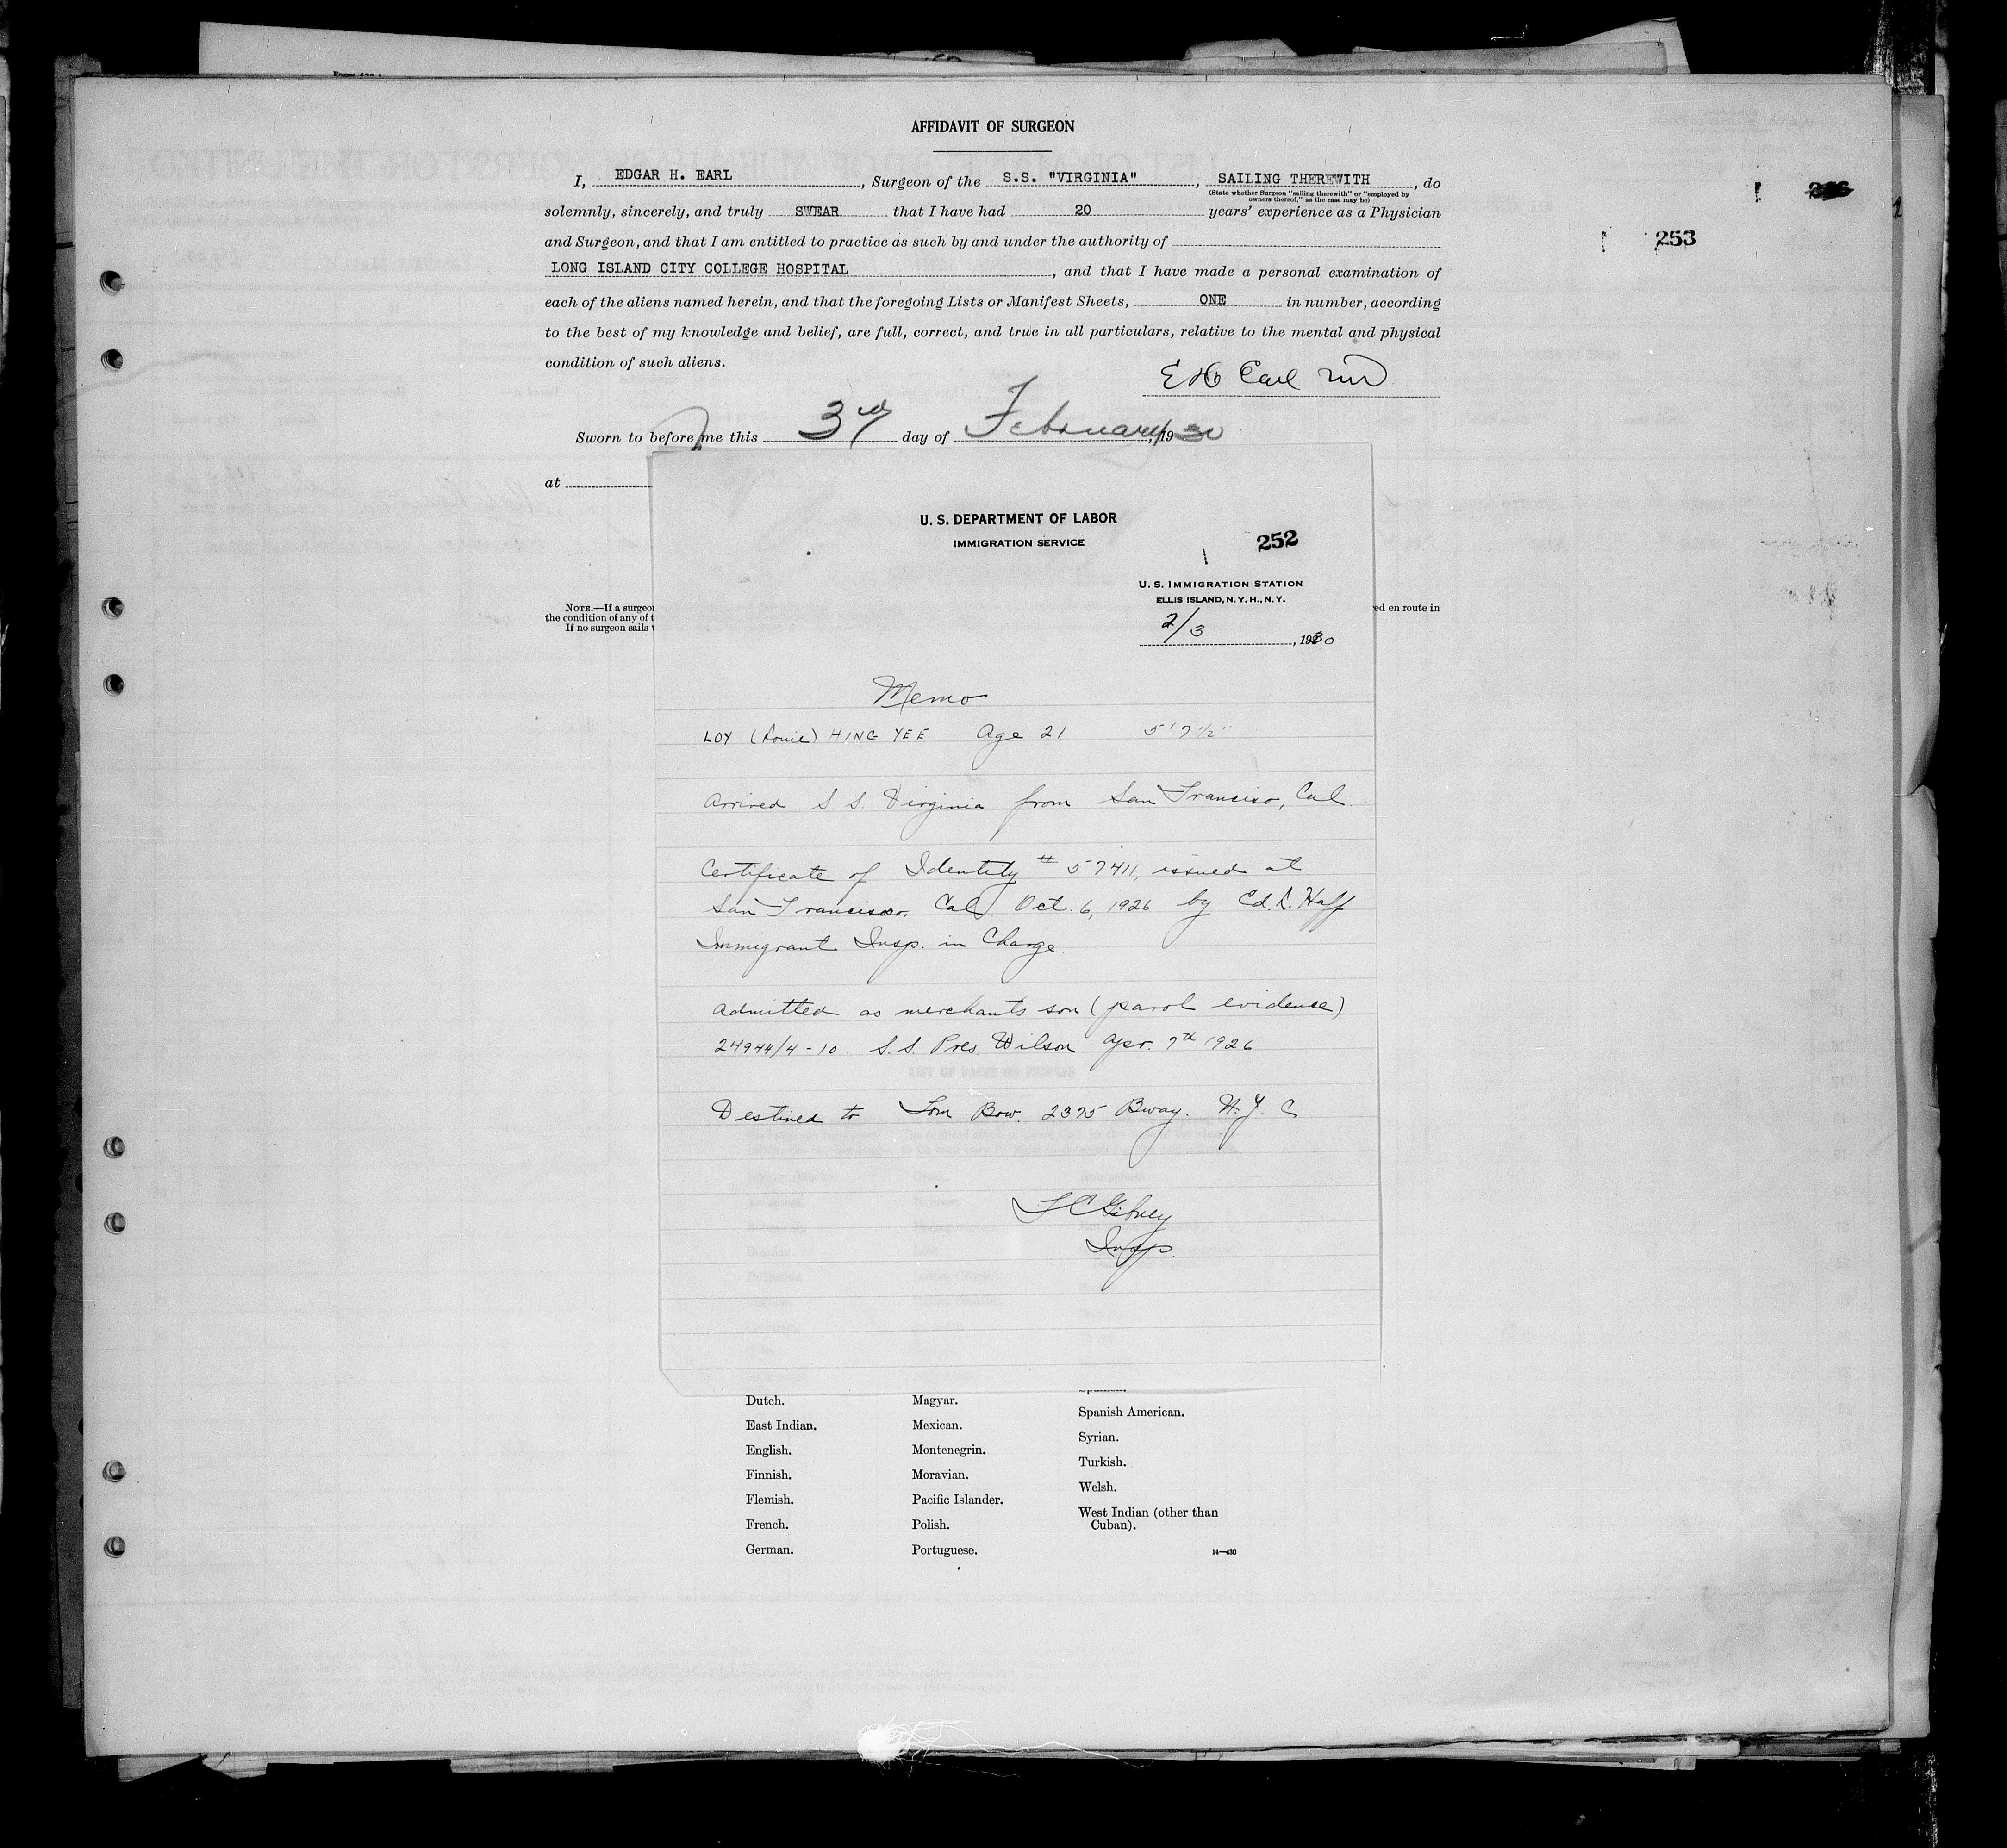 AFFIDAVIT OF SURGEON
I, EDGAR H. EARL, Surgeon of the S.S. "VIRGINIA", SAILING THEREWITH, do
(State whether Surgeon "sailing therewith" or "employed by
owners thereof," as the case may be)
solemnly, sincerely, and truly SWEAR that I have had 20 years' experience as a Physician
253
and Surgeon, and that I am entitled to practice as such by and under the authority of
LONG ISLAND CITY COLLEGE HOSPITAL, and that I have made a personal examination of
each of the aliens named herein, and that the foregoing Lists or Manifest Sheets, ONE in number, according
to the best of my knowledge and belief, are full, correct, and true in all particulars, relative to the mental and physical
condition of such aliens.
EH Earl MD
Sworn to before me this 3rd day of February, 1930
at
NOTE.—If a surgeo
the condition of any of t
If no surgeon sails
ed en route in
U. S. DEPARTMENT OF LABOR
IMMIGRATION SERVICE
252
U. S. IMMIGRATION STATION
ELLIS ISLAND, N. Y. H., N. Y.
2/3, 1930
Memo
LOY (Louie) HING YEE Age 21 5'7½"
Arrived S. S. Virginia from San Francisco, Cal.
Certificate of Identity # 57411, issued at
San Francisco. Cal. Oct. 6, 1926 by Ed. L. Haff
Immigrant Insp. in Charge.
Admitted as merchants son (parol evidence)
24944/4-10. S.S. Pres. Wilson Apr. 7th 1926
Destined to Tom Bow. 2375 Bway. N. Y. C
Insp.
Dutch.
East Indian.
English.
Finnish.
Flemish.
French.
German.
Magyar.
Mexican.
Montenegrin.
Moravian.
Pacific Islander.
Polish.
Portuguese.
Spanish American.
Syrian.
Turkish.
Welsh.
West Indian (other than
Cuban).
14—430